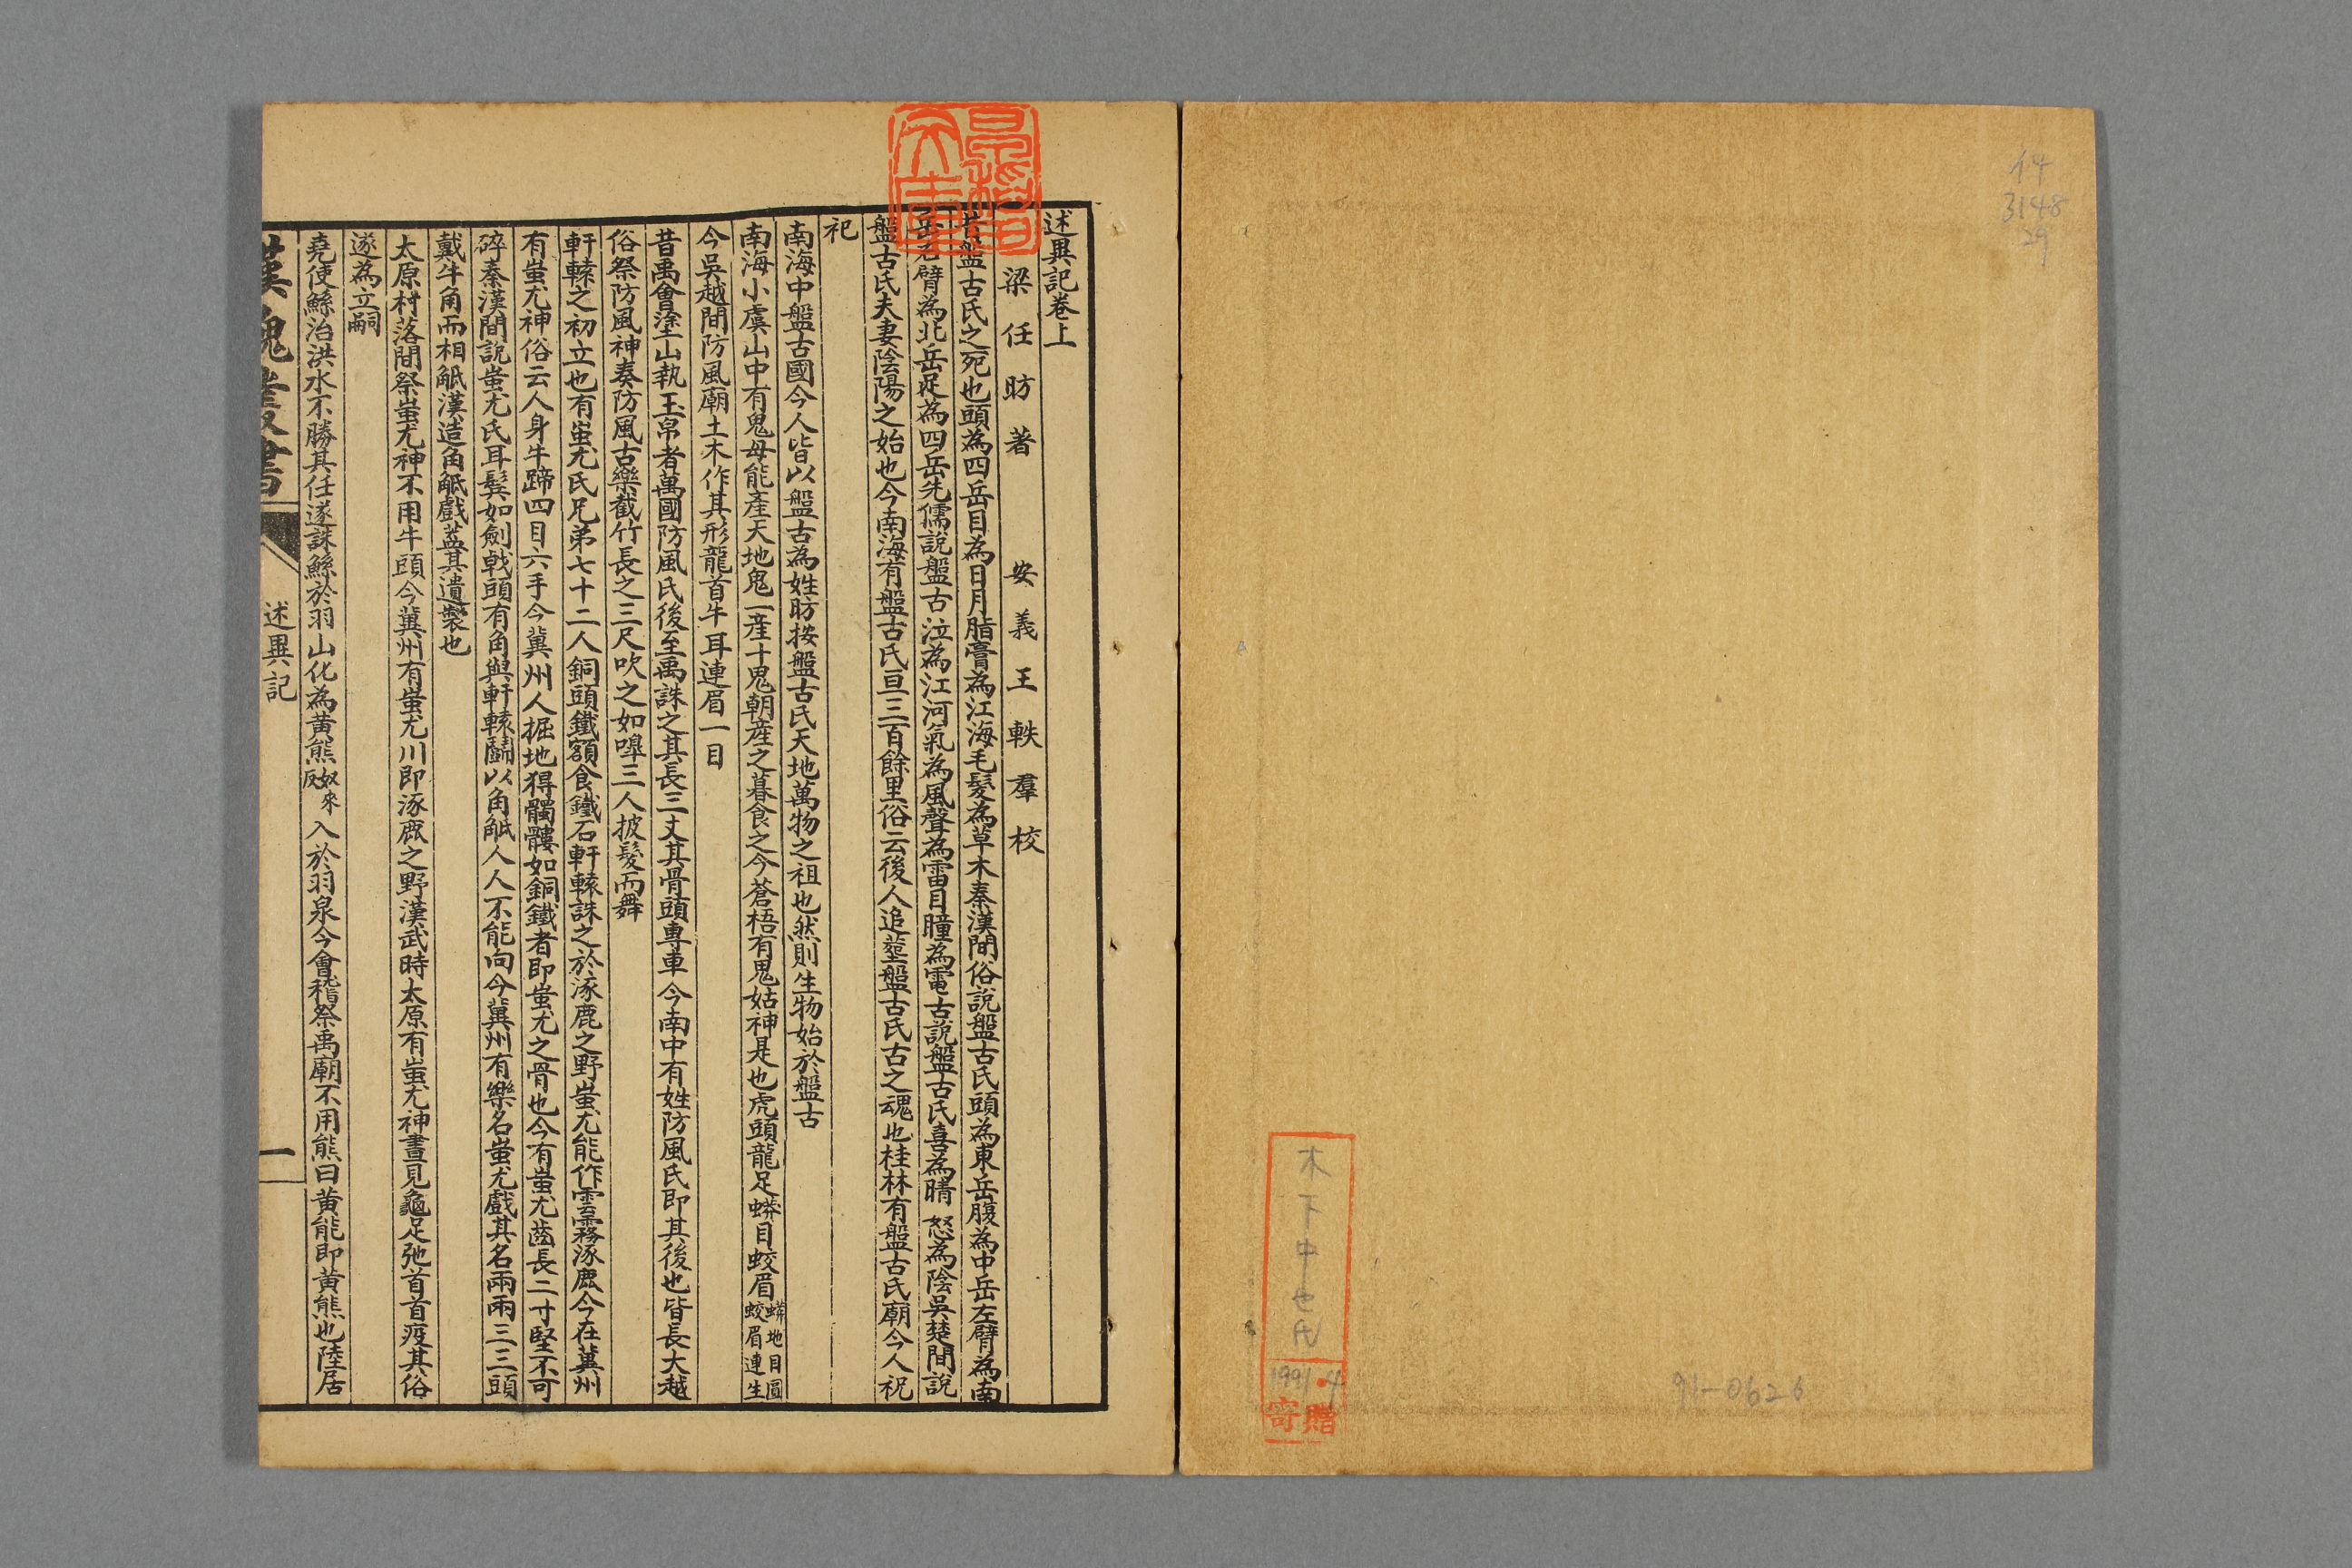 述異記卷上
梁任昉著 安義王軼羣校
昔盤古氏之死也頭為四岳目為日月脂膏為江海毛髮為草木秦漢間俗說盤古氏頭為東岳腹為中岳左臂為南
岳右臂為北岳足為四岳先儒說盤古泣為江河氣為風聲為雷目瞳為電古說盤古氏喜為晴怒為陰吳楚間說
盤古氏夫妻陰陽之始也今南海有盤古氏亘三百餘里俗云後人追塟盤古氏古之魂也桂林有盤古氏廟今人祝
祀
南海中盤古國今人皆以盤古為姓昉按盤古氏天地萬物之祖也然則生物始於盤古
南海小虞山中有鬼母能產天地鬼一産十鬼朝産之暮食之今蒼梧有鬼姑神是也虎頭龍足蟒目蛟眉蟒地目圓蛟眉連生
今吳越間防風廟土木作其形龍首牛耳連眉一目
昔禹會塗山執玉帛者萬國防風氏後至禹誅之其長三丈其骨頭專車今南中有姓防風氏即其後也皆長大越
俗祭防風神奏防風古樂截竹長之三尺吹之如嘷三人披髮而舞
軒轅之初立也有蚩尤氏兄弟七十二人銅頭鐵額食鐵石軒轅誅之於涿鹿之野蚩尤能作雲霧涿鹿今在冀州
有蚩尤神俗云人身牛蹄四目六手今冀州人掘地得髑髏如銅鐵者即蚩尤之骨也今有蚩尤齒長二寸堅不可
碎秦漢間說蚩尤氏耳鬢如劍戟頭有角與軒轅鬭以角觝人人不能向今冀州有樂名蚩尤戲其名兩兩三三頭
戴牛角而相觝漢造角觝戲蓋其遺製也
太原村落間祭蚩尤神不用牛頭今冀州有蚩尤川即涿鹿之野漢武時太原有蚩尤神晝見龜足虵首首疫其俗
遂為立嗣
堯使鯀治洪水不勝其任遂誅鯀於羽山化為黄熊奴來反入於羽泉今會稽祭禹廟不用熊曰黄能即黄熊也陸居
漢魏叢書 述異記 一
14
3148
29
木下中也氏
1991.4
寄贈
91-0626